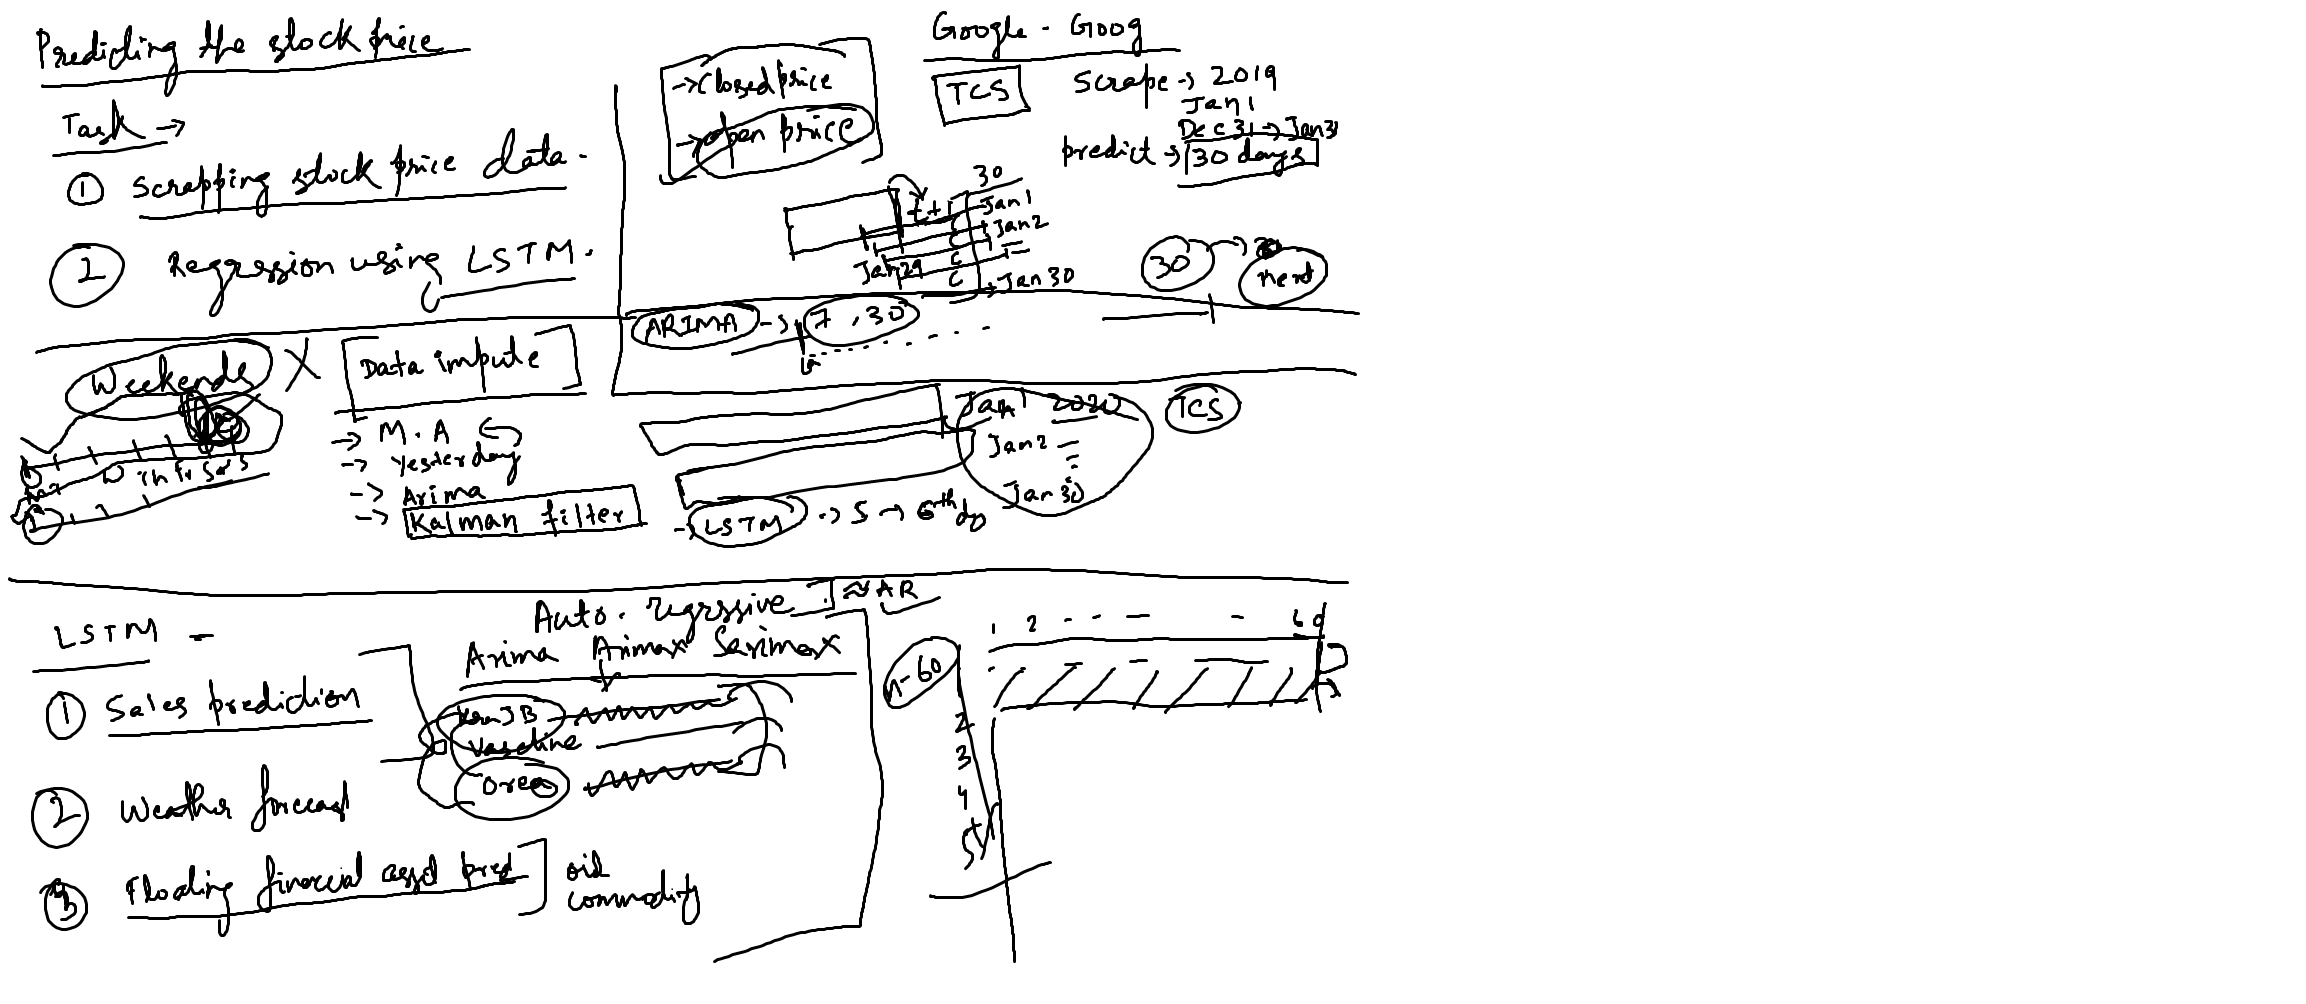 Predicting the stock price
Task →
① Scrapping stock price data.
② Regression using LSTM.
→ Closed price
→ open price
Google - Goog
TCS
Scrape → 2019
Jan 1
Dec 31 → Jan 31
predict → 30 days
30
t+1
Jan 1
Jan 2
Jan 29
Jan 30
30 → next
ARIMA → 7, 30
Weekends X
Data impute
→ M.A
→ Yesterday
→ Arima
→ Kalman filter
W Th Fr Sa S
Jan 1 2020
Jan 2
Jan 30
TCS
→ LSTM → 5 → 6th day
LSTM -
① Sales prediction
② Weather forecast
③ Floating financial asset pred
oil
commodity
Auto. regrssive ≈ AR
Arima Arimax Sarimax
Vaseline
Oreo
n-60
1 2 - - - - 60
2
3
4
5